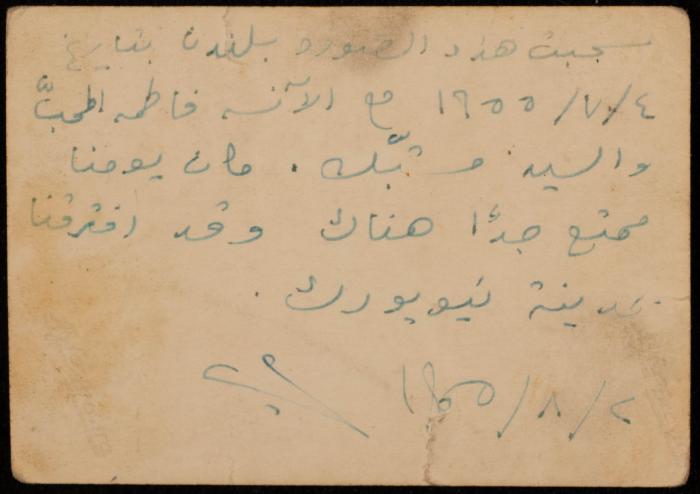 سحبت هذه الصوره بلندن بتاريخ
١٩٥٥/٧/٤ مع الآنسه فاطمه المحبّ
والسيد مشبّك . كان يومنا
ممتع جدًا هناك وقد افترقنا
بمدينة نيويورك .
١٩٥٥/٨/٢